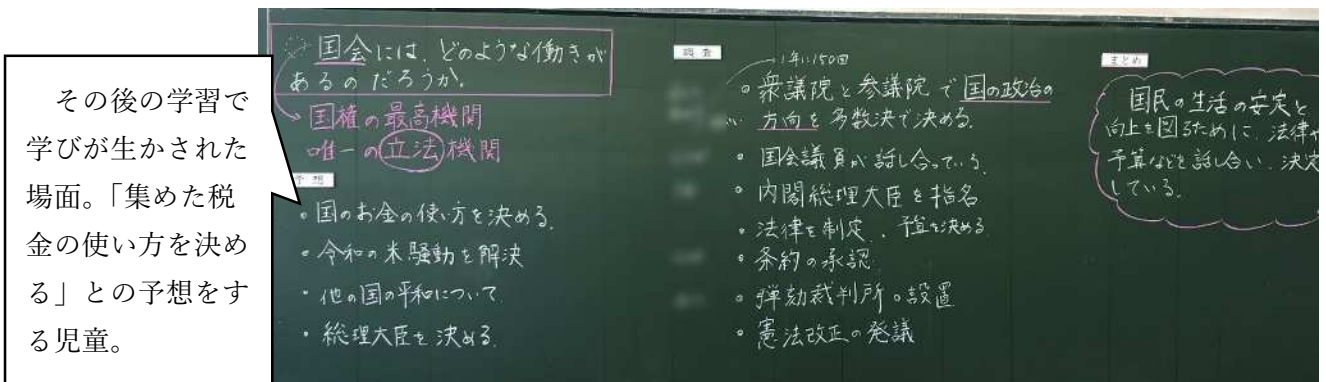 その後の学習で
学びが生かされた
場面。「集めた税
金の使い方を決め
る」との予想をす
る児童。
国会には、どのような働きが
あるのだろうか。
国権の最高機関
唯一の立法機関
予想
・国のお金の使い方を決める。
・令和の米騒動を解決
・他の国の平和について
・総理大臣を決める。
調査
→1年に150回
・衆議院と参議院で国の政治の
方向を多数決で決める。
・国会議員が話し合っている。
・内閣総理大臣を指名
・法律を制定、予算を決める
・条約の承認
・弾劾裁判所の設置
・憲法改正の発議
まとめ
国民の生活の安定と
向上を図るために、法律や
予算などを話し合い、決定
している。